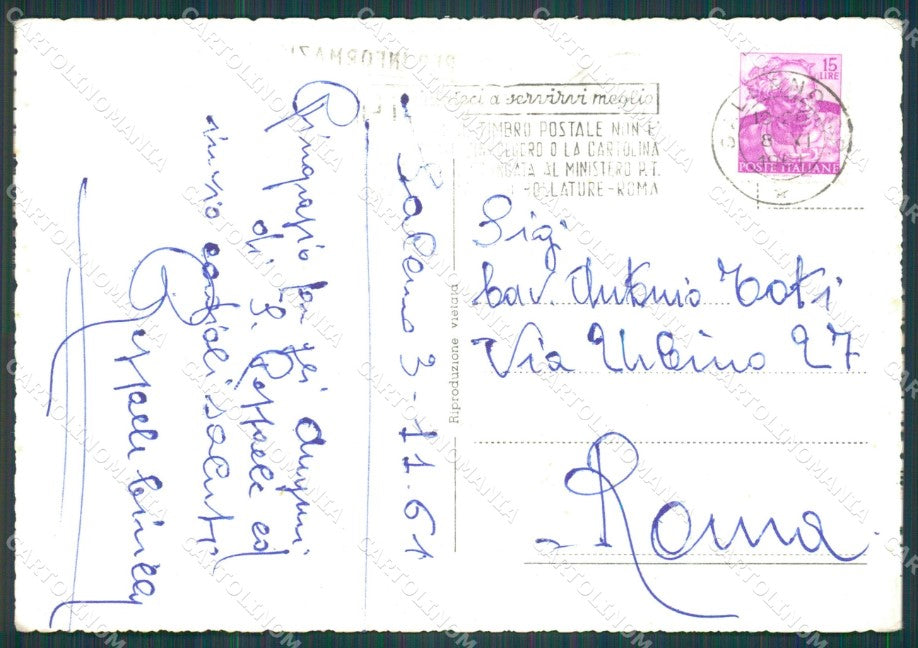 Salerno 3-11.61
Ringrazio per gli auguri
di S. Raffaele ed
invio cordiali saluti
Raffaele
aci a servirvi meglio
TIMBRO POSTALE NON E'
O LA CARTOLINA
AL MINISTERO P.T.
-ROMA
15
LIRE
POSTE ITALIANE
Riproduzione vietata
Sig.
Cav. Antonio Toti
Via Urbino 27
Roma
CARTOLINOMANIA